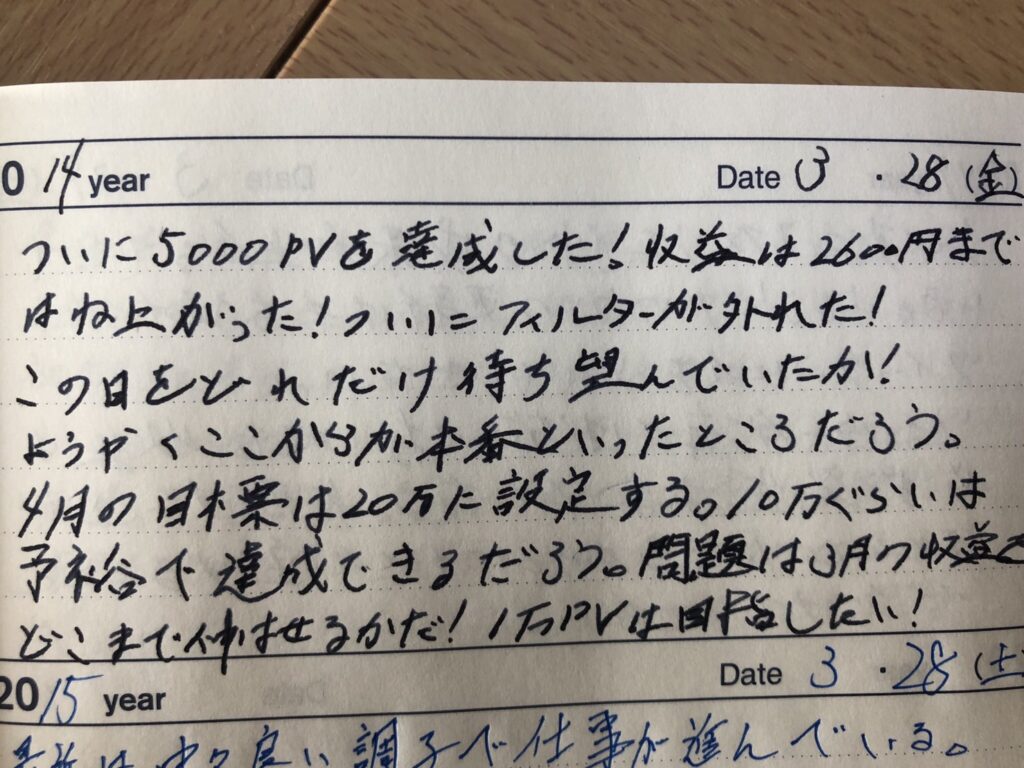 0 14 year Date 3 ・28 (金)
ついに5000PVを達成した!収益は2600円まで
はね上がった!ついにフィルターが外れた!
この日をどれだけ待ち望んでいたか!
ようやくここからが本番といったところだろう。
4月の目標は20万に設定する。10万ぐらいは
余裕で達成できるだろう。問題は3月の収益を
どこまで伸ばせるかだ!1万PVは目指したい!
2015 year Date 3 ・28 (土
は中々良い調子で仕事が進んでいる。